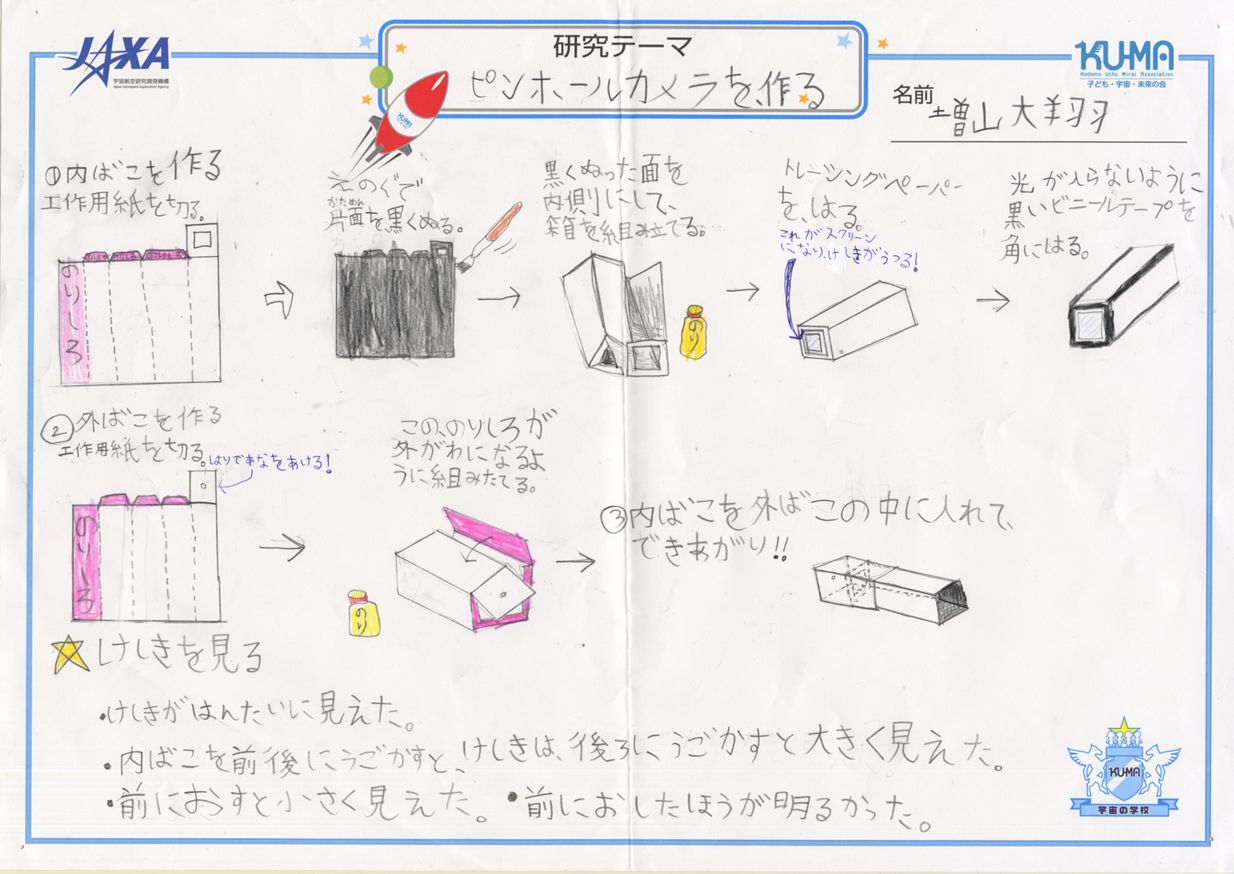 JAXA
宇宙航空研究開発機構
Japan Aerospace Exploration Agency
研究テーマ
ピンホールカメラを作る
KUMA
KUMA
Kodomo Uchu Mirai Association
子ども・宇宙・未来の会
名前
増山大翔羽
①内ばこを作る
工作用紙を切る。
のりしろ
えのぐで
かためん
片面を黒くぬる。
黒くぬった面を
内側にして、
箱を組み立てる。
のり
トレーシングペーパー
を、はる。
これがスクリーン
になり、けしきがうつる!
光が入らないように
黒いビニールテープを
角にはる。
②外ばこを作る
工作用紙を切る。
はりであなをあける!
のりしろ
この、のりしろが
外がわになるよ
うに組みたてる。
のり
③内ばこを外ばこの中に入れて、
できあがり!!
けしきを見る
・けしきがはんたいに見えた。
・内ばこを前後にうごかすと、けしきは、後ろにうごかすと大きく見えた。
・前におすと小さく見えた。 ・前におしたほうが明るかった。
KUMA
宇宙の学校